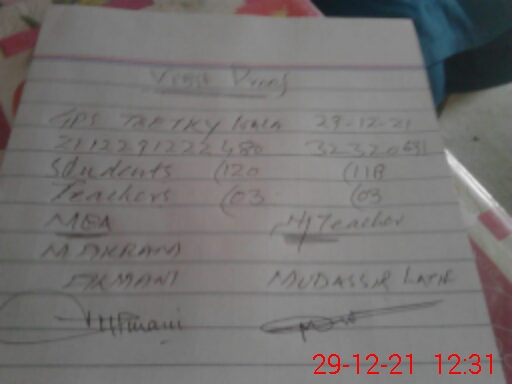 Visit Proof
GPS TAKTKY WALA 29-12-21
2112291222480 32320
Students (120 (118
Teachers (03 (03
MEA H/Teacher
M AKRAM
ARMANI MUDASSIR LATIF
29-12-21 12:31